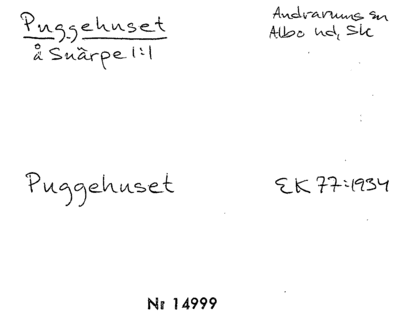 Puggehuset
å Snärpe 1:1
Andrarums sn
Albo hd, Sk
Puggehuset
EK 77:1934
Nr 14999